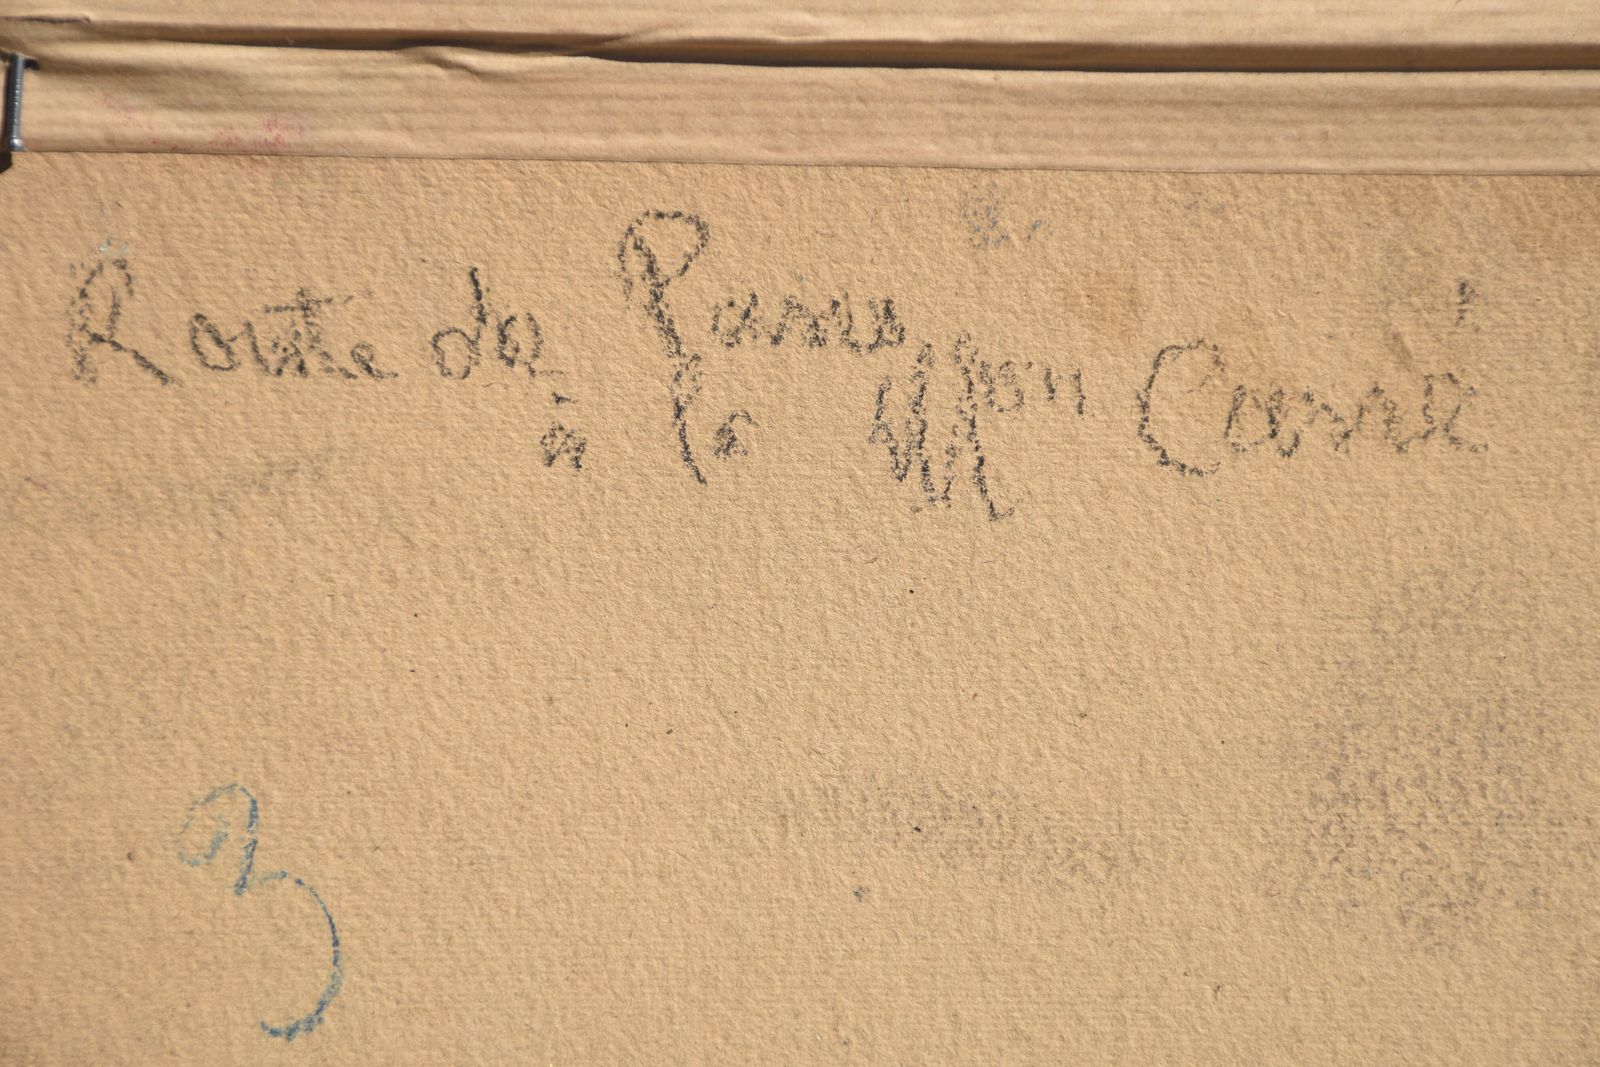 Route de Pasnu
à la Mon Carré
3